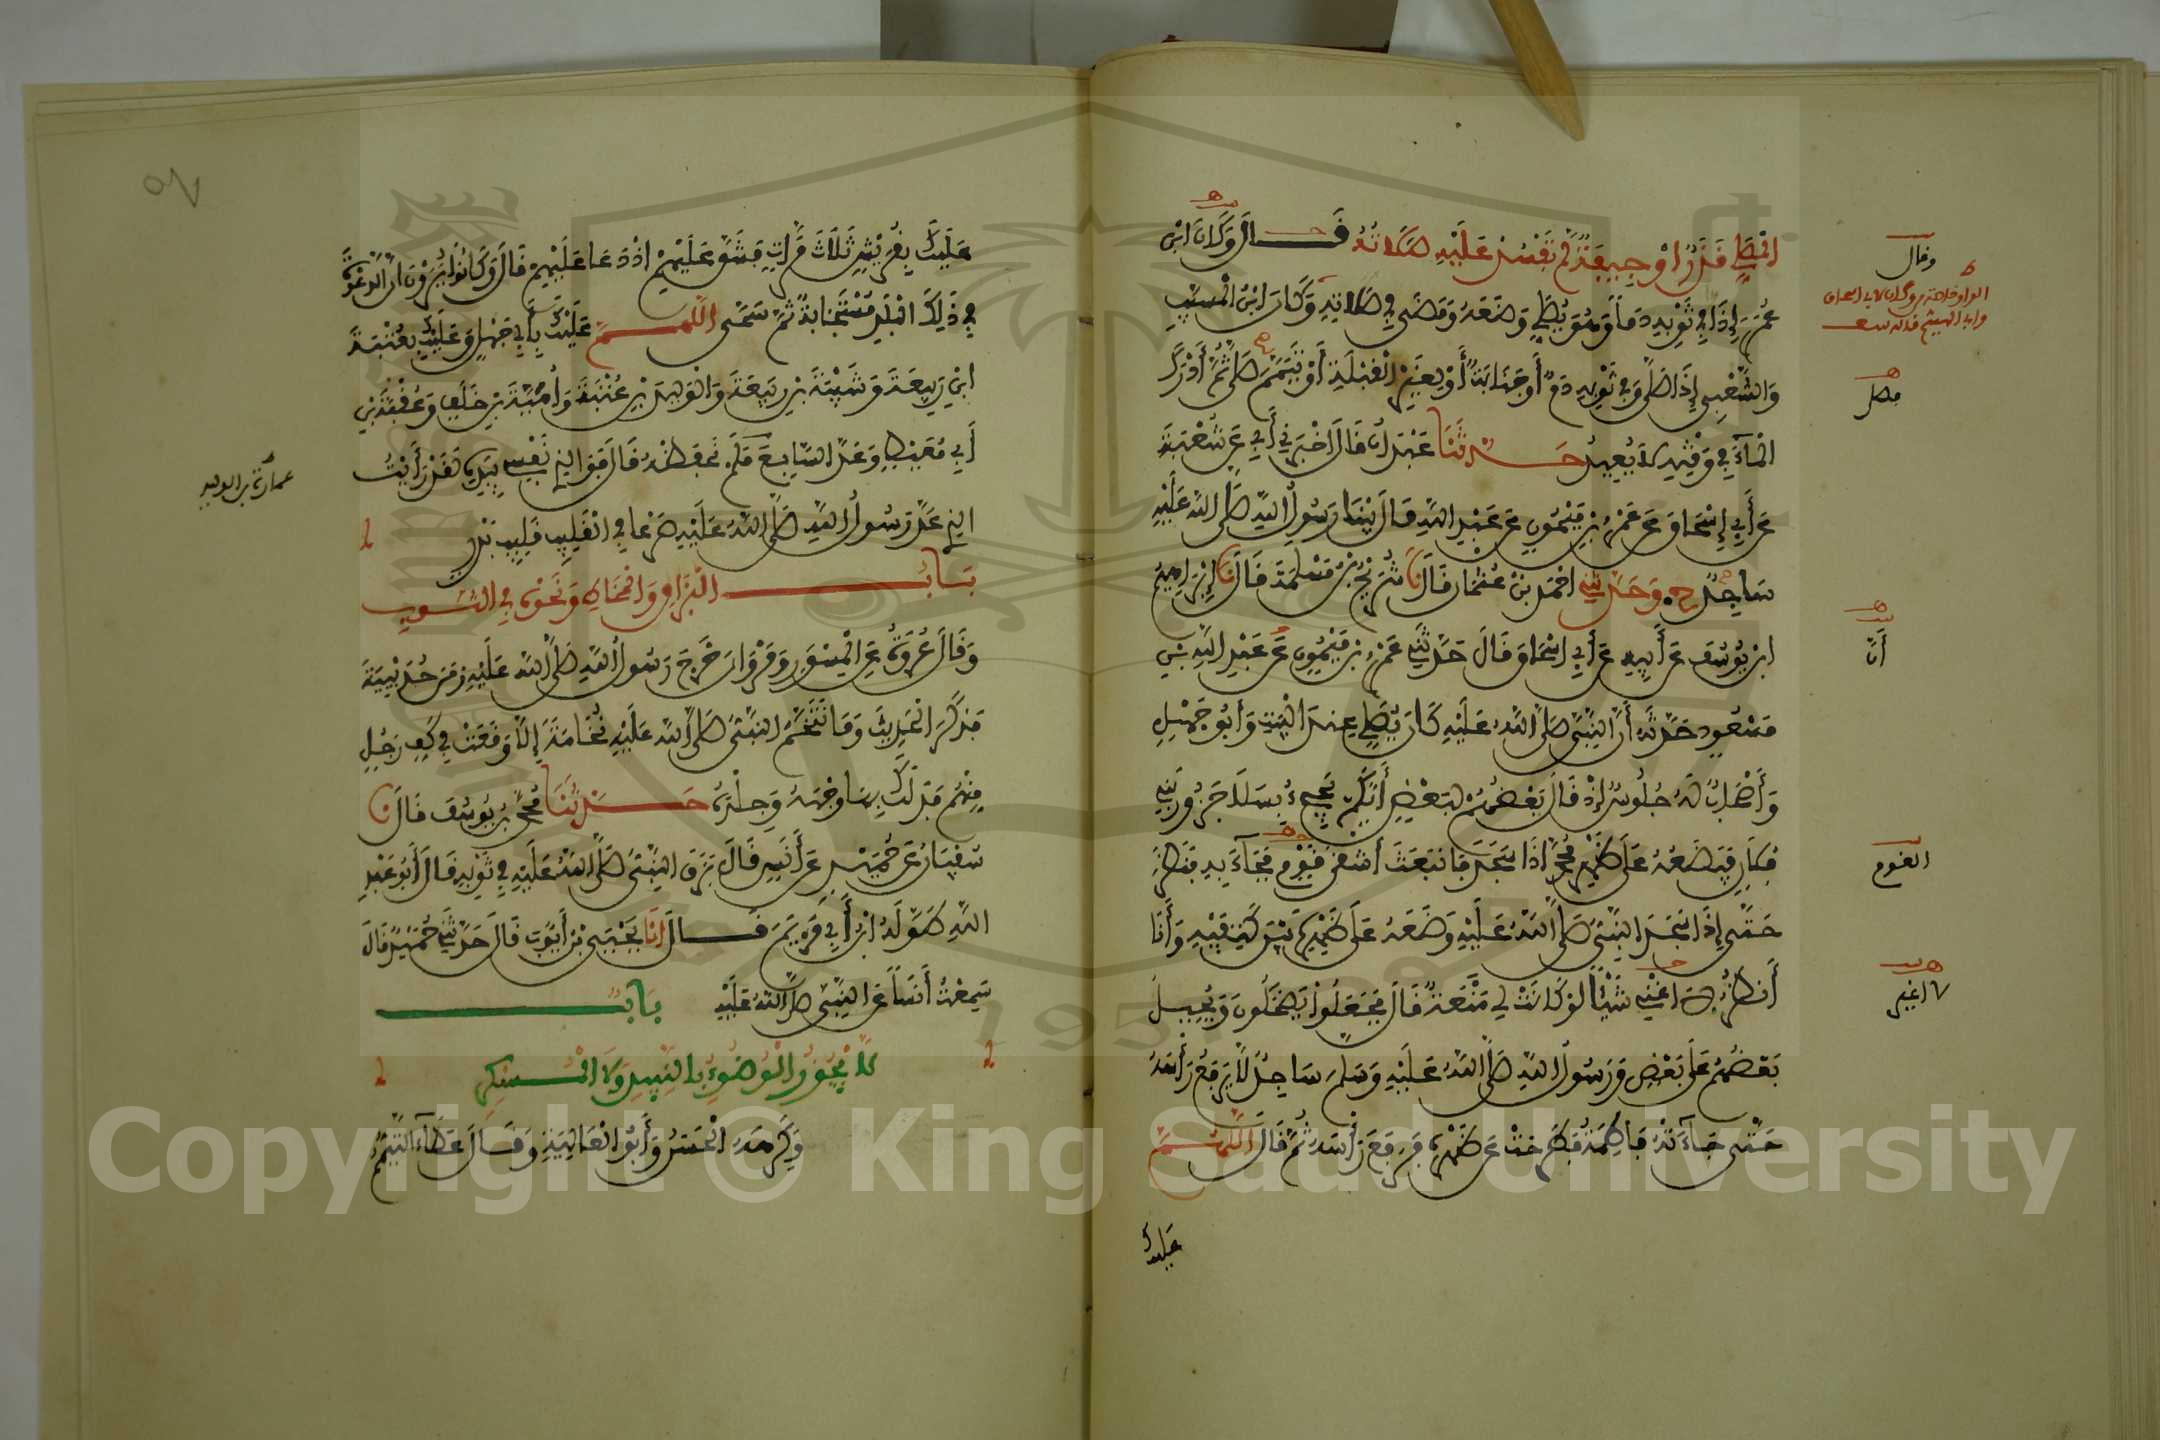 المصلي قذر أو جيفة لم تفسد عليه صلاته قال وكان ابن
عمر إذا رأى في ثوبه دما وهو يصلي وضعه ومضى في صلاته وكان ابن المسيب
والشعبي إذا صلى وفي ثوبه دم أو جنابة أو لغير القبلة أو تيمم صلى ثم أدرك
الماء في وقته لا يعيد حدثنا عبدان قال أخبرني أبي عن شعبة
عن أبي إسحاق عن عمرو بن ميمون عن عبد الله قال بينا رسول الله صلى الله عليه
ساجد ح وحدثني أحمد بن عثمان قال نا شريح بن مسلمة قال نا إبراهيم
ابن يوسف عن أبيه عن أبي إسحاق قال حدثني عمرو بن ميمون عن عبد الله بن
مسعود حدثه أن النبي صلى الله عليه كان يصلي عند البيت وأبو جهل
وأصحاب له جلوس إذ قال بعضهم لبعض أيكم يجيء بسلا جزور بني
فلان فيضعه على ظهر محمد إذا سجد فانبعث أشقى قوم فجاء به فنظر
حتى إذا سجد النبي صلى الله عليه وضعه على ظهره بين كتفيه وأنا
أنظر لا أغني شيئا لو كانت لي منعة قال فجعلوا يضحكون ويحيل
بعضهم على بعض ورسول الله صلى الله عليه وسلم ساجد لا يرفع رأسه
حتى جاءته فاطمة فطرحت عن ظهره فرفع رأسه ثم قال اللهم
عليك
وقال
أن
القوم
لا أغير
عليك بقريش ثلاث مرات فشق عليهم إذ دعا عليهم قال وكانوا يرون أن الدعوة
في ذلك البلد مستجابة ثم سمى اللهم عليك بأبي جهل وعليك بعتبة
ابن ربيعة وشيبة بن ربيعة والوليد بن عتبة وأمية بن خلف وعقبة بن
أبي معيط وعد السابع فلم نحفظه قال فوالذي نفسي بيده لقد رأيت
الذي عد رسول الله صلى الله عليه صرعى في القليب قليب بدر
باب البزاق والمخاط ونحوه في الثوب
وقال عروة عن المسور ومروان خرج رسول الله صلى الله عليه زمن حديبية
فذكر الحديث وما تنخم النبي صلى الله عليه نخامة إلا وقعت في كف رجل
منهم فدلك بها وجهه وجلده حدثنا محمد بن يوسف قال نا
سفيان عن حميد عن أنس قال بزق النبي صلى الله عليه في ثوبه قال أبو عبد
الله طوله ابن أبي مريم قال أنا يحيى بن أيوب قال حدثني حميد قال
سمعت أنسا عن النبي صلى الله عليه باب
لا يجوز الوضوء بالنبيذ ولا المسكر
وكرهه الحسن وأبو العالية وقال عطاء التيمم
عمارة بن الوليد
Copyright © King Saud University
1957